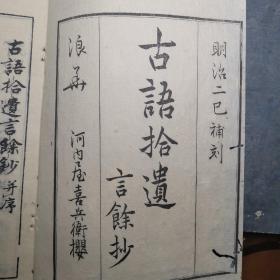 明治二巳補刻
古語拾遺
言餘抄
浪華 河内屋喜兵衛櫻
古語拾遺言餘鈔并序